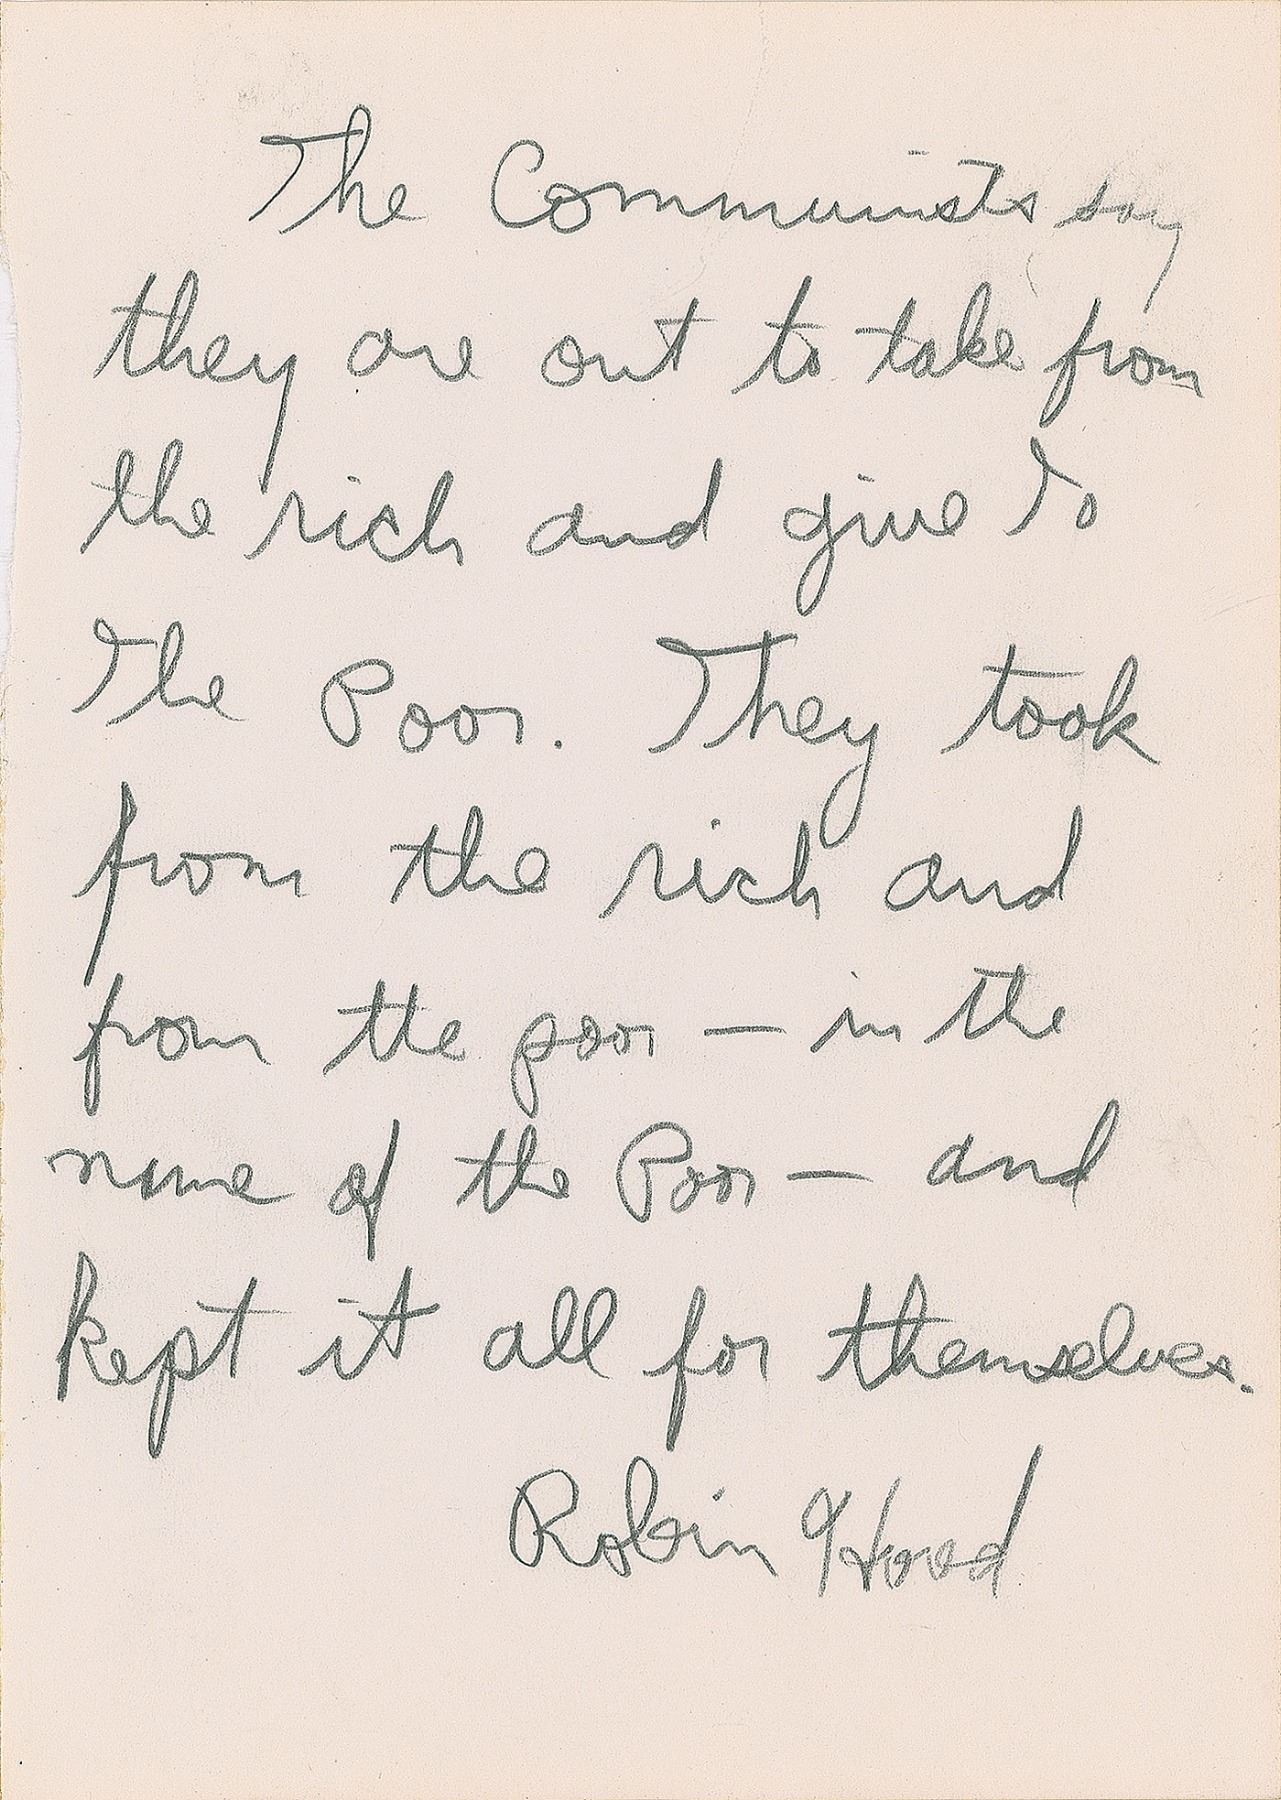 The Communists say
they are out to take from
the rich and give to
the Poor. They took
from the rich and
from the poor — in the
name of the Poor — and
kept it all for themselves.
Robin Hood